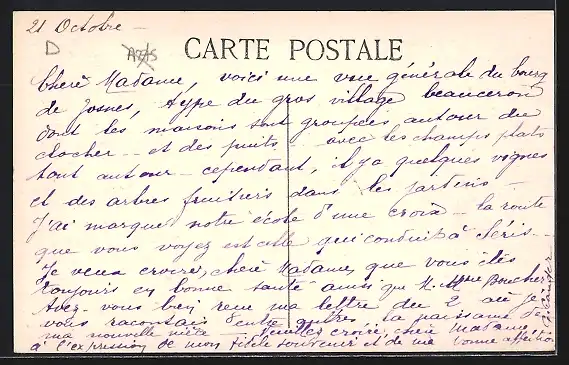 21 Octobre -
D
CARTE POSTALE
Chère Madame, voici une vue générale du bourg
de Josnes, type du gros village beauceron
dont les maisons sont groupées autour du
clocher - et des puits - avec les champs plats
tout autour - cependant, il y a quelques vignes
et des arbres fruitiers dans les jardins -
J'ai marqué notre école d'une croix - la route
que vous voyez est celle qui conduit à Séris -
Je veux croire, chère Madame, que vous êtes
toujours en bonne santé ainsi que M. Mme Boucher
Avez-vous bien reçu ma lettre du 2 où je
vous racontais entre autres la naissance de
ma nouvelle nièce Veuillez croire, chère Madame,
à l'expression de mon fidèle souvenir et de ma bonne affection